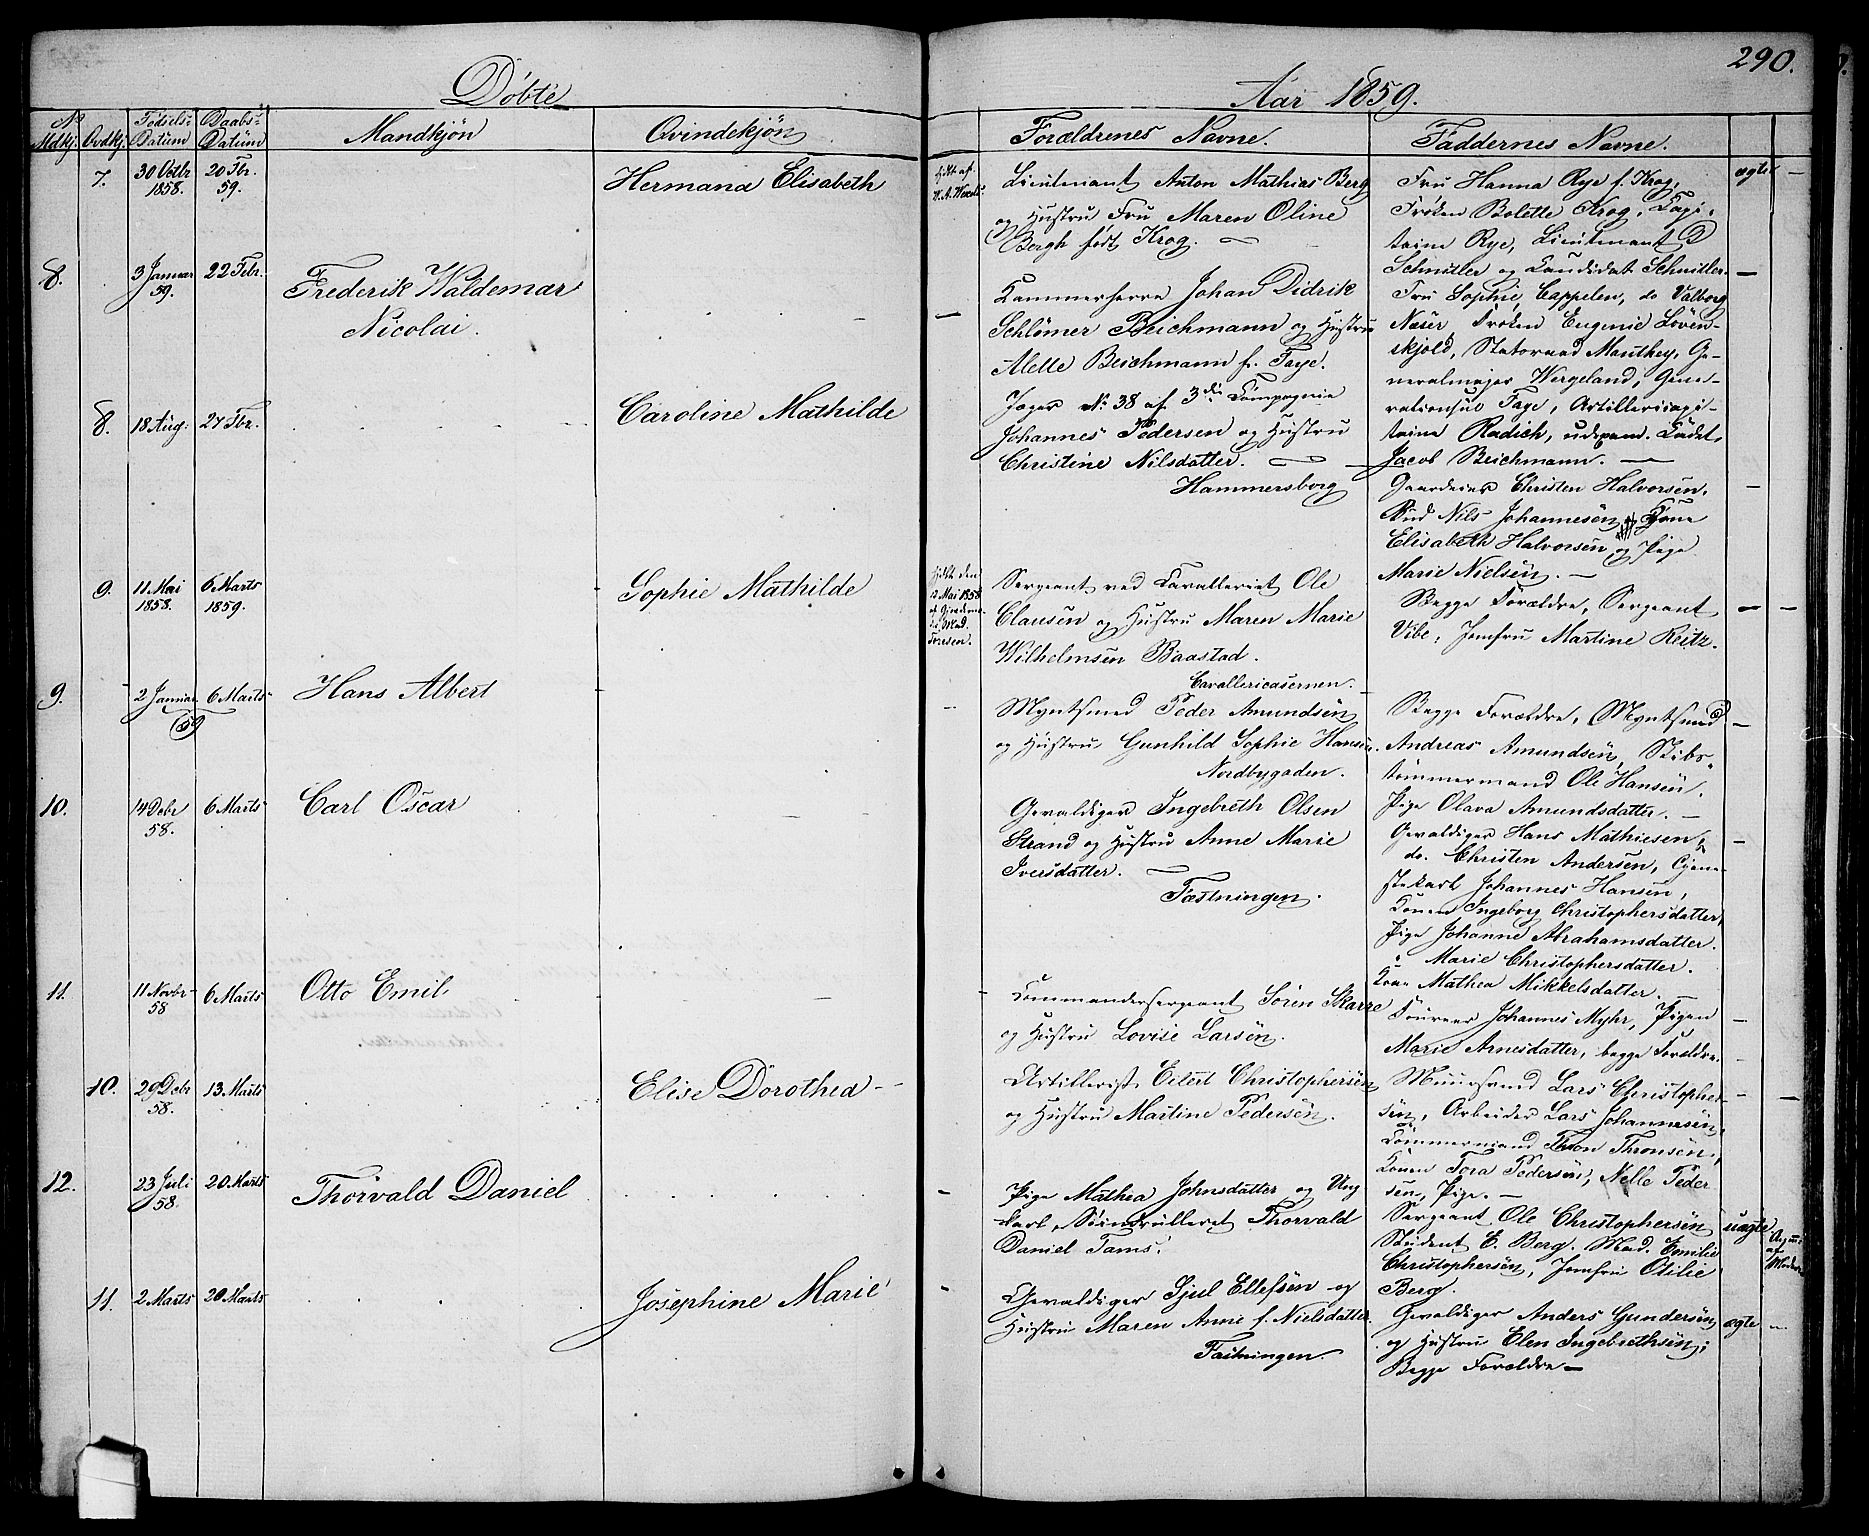 290.
Döbte
Aar 1859.
No
Mdkj. Qvdkj. Födsels-Datum Daabs-Datum Mandkjön Qvindekjön Forældrenes Navne. Faddernes Navne.
7. 30 Octbr 1858. 20 Fbr. 59. Hermana Elisabeth
hjdt af
Lieutenant Anton Mathias Berg
og Hustru Fru Maren Oline
Bergh født Krog.
Fru Hanna Rye f. Krog,
Fröken Bolette Krog, Capi-
taine Rye, Lieutenant D
Schnitler og Candidat Schnitler.
ægte
8. 3 Januar 59. 22 Febr. Frederik Waldemar
Nicolai.
Kammerherre Johan Didrik
Schlömer Beichmann og Hustru
Alette Beichmann f. Faye.
Fru Sophie Cappelen, do Valborg
Næser, Fröken Eugenie Löven-
skjold, Statsraad Manthey, Ge-
neralmajor Wergeland, Gene-
ralconsul Faye, Artillericapi-
taine Radich, udexam. Cadet
Jacob Beichmann.
8. 18 Aug: 27 Fbr. Caroline Mathilde
Jæger No 38 af 3die Compagnie
Johannes Pedersen og Hustru
Christine Nilsdatter.
Hammersborg
Gaardeier Christen Halvorsen,
Bud Nils Johannesen, Kone
Elisabeth Halvorsen og Pige
Marie Nielsen.
9. 11 Mai 1858. 6 Marts 1859. Sophie Mathilde
hjdöbt den
12 Mai 1858
af Gjordemo-
der Mad.
Toresen.
Sergeant ved Cavalleriet Ole
Clausen og Hustru Maren Marie
Wilhelmsen Baastad.
Cavallericasernen.
Begge Forældre, Sergeant
Vibe, Jomfru Martine Reitz.
9. 2 Januar 59 6 Marts Hans Albert
Myntsmed Peder Amundsen
og Hustru Gunhild Sophie Hansen.
Nordbygaden.
Begge Forældre, Myntsmed
Andreas Amundsen, Skibs-
tömmermand Ole Hansen.
Pige Olava Amundsdatter.
10. 14 Debr 58. 6 Marts Carl Oscar
Gevaldiger Ingebreth Olsen
Strand og Hustru Anne Marie
Iversdatter.
Fæstningen.
Gevaldiger Hans Mathiesen,
do. Christen Andersen, Tjene-
stekarl Johannes Hansen,
Konen Ingeborg Christophersdatter,
Pige Johanne Abrahamsdatter.
" Marie Christophersdatter.
Kone Mathea Mikkelsdatter.
11. 11 Novbr 58 6 Marts Otto Emil
Commandersergeant Sören Skarre
og Hustru Lovise Larsen.
Foureer Johannes Myhr, Pigen
Marie Arnesdatter, begge Forældre.
10. 29 Debr 58. 13 Marts Elise Dorothea
Artillerist Eilert Christophersen
og Hustru Martine Pedersen.
Muursvend Lars Christopher-
sen, Arbeider Lars Johannesen,
Tömmermand Thron Thronsen,
Konen Tora Pedersen, Nelle Peder
sen, Pige.
12. 23 Juli 58. 20 Marts Thorvald Daniel
Pige Mathea Johnsdatter og Ung
karl, Söindrulleret Thorvald
Daniel Tams.
Sergeant Ole Christophersen
Student E. Berg. Mad. Emilie
Christophersen, Jomfru Otilie
Berg.
uægte
af
Moderen
11. 2 Marts 20 Marts Josephine Marie
Gevaldiger Sjul Ellefsen og
Hustru Maren Anne f. Nielsdatter.
Fæstningen.
Gevaldiger Anders Gundersen
og Hustru Elen Ingebrethsen;
Begge Forældre
ægte